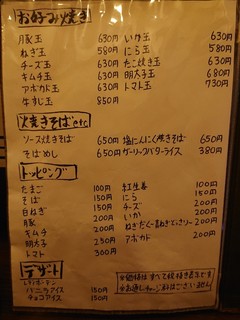 お好み焼き
豚玉 630円 いか玉 630円
ねぎ玉 630円 にら玉 580円
チーズ玉 630円 たこ焼き玉 630円
キムチ玉 630円 明太子玉 680円
アボカド玉 630円 トマト玉 730円
牛すじ玉 850円
焼きそばetc.
ソース焼きそば 650円 塩にんにく焼きそば 650円
そばめし 650円 ガーリックバターライス 380円
トッピング
たまご 100円 紅生姜 100円
そば 150円 にら 150円
白ねぎ 150円 チーズ 200円
豚 200円 いか 200円
キムチ 200円 ねぎだく 200円
明太子 250円 アボカド 200円
トマト 300円
デザート
バニラアイス 150円
チョコアイス 150円
※価格はすべて税抜き表示です
※お通し・チャージ料はございません